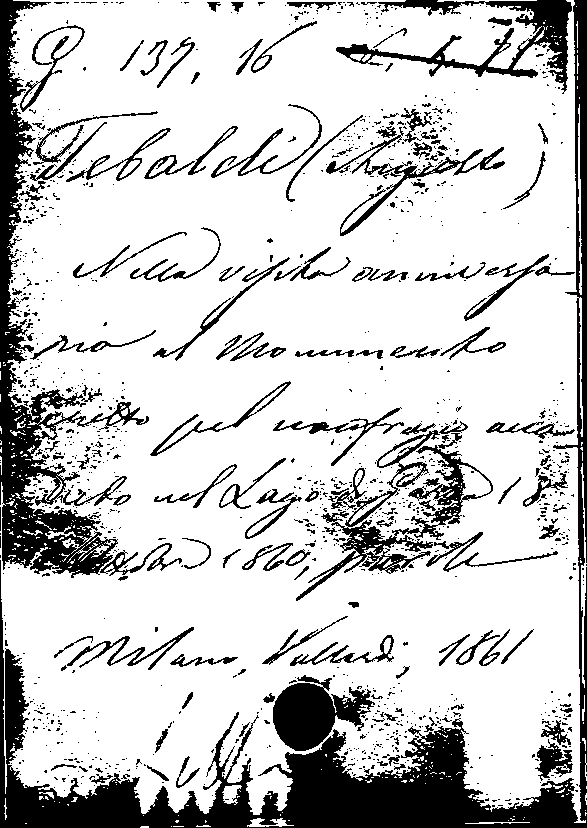 G. 137, 16
Tebaldi (Angiolo)
Nella visita anniversa-
rio al Monumento
eretto pel naufragio acca-
duto nel Lago di Garda 18
Ottobre 1860, parole
Milano, Vallardi, 1861